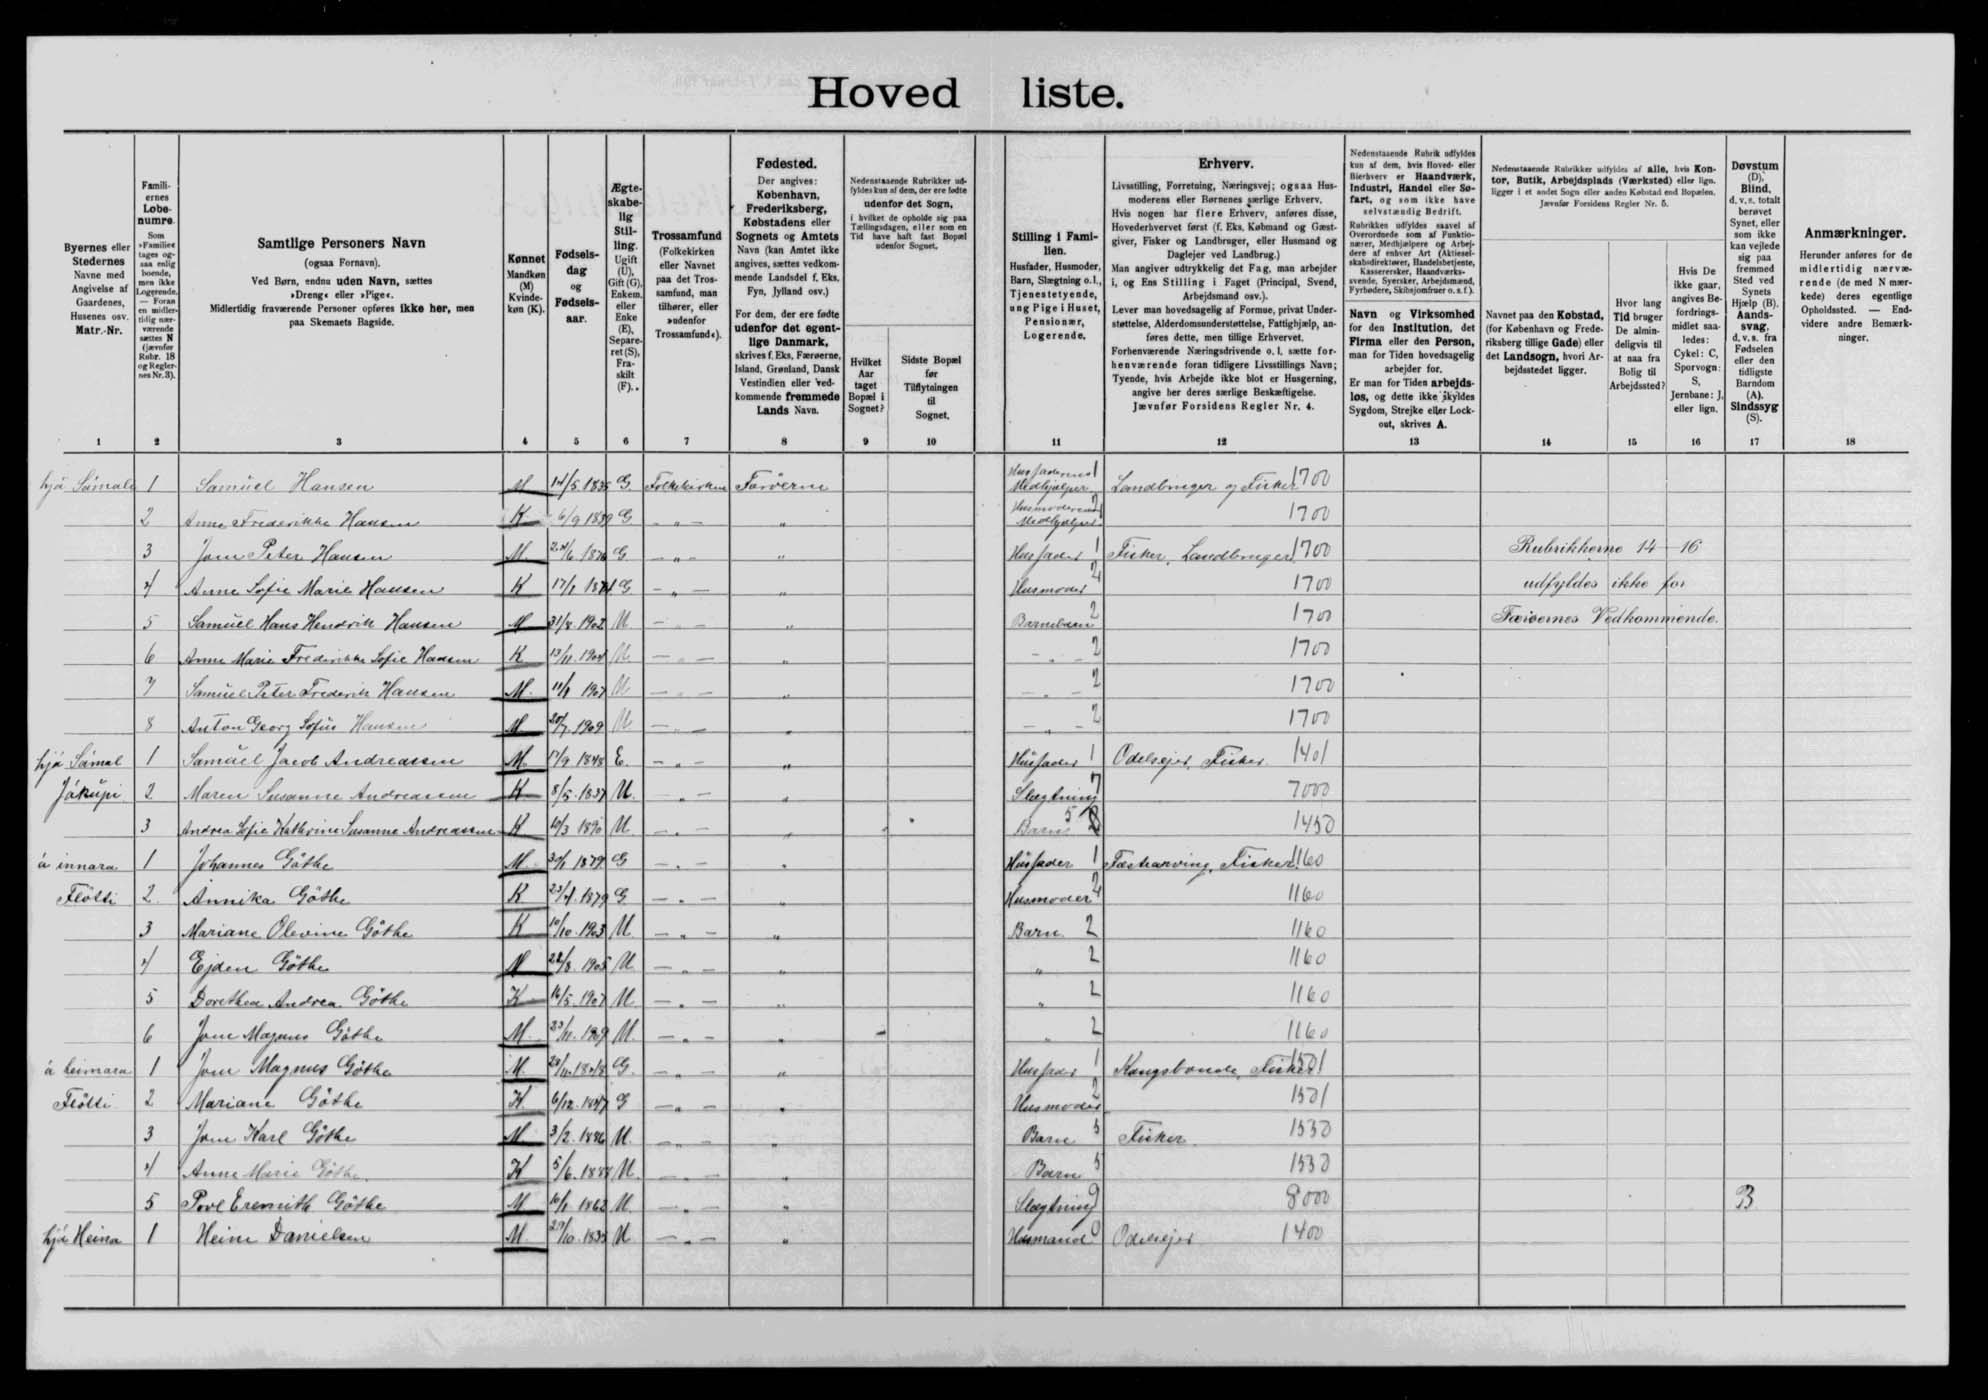 Hoved liste.
Byernes eller Stedernes Navne med Angivelse af Gaardenes, Husenes osv. Matr.-Nr.
Familiernes Løbenumre. Som »Familie« tages ogsaa enlig boende, men ikke Logerende. — Foran en midlertidig nærværende sættes N (jævnfør Rubr. 18 og Reglernes Nr. 3).
Samtlige Personers Navn
(ogsaa Fornavn).
Ved Børn, endnu uden Navn, sættes
»Dreng« eller »Pige«.
Midlertidig fraværende Personer opføres ikke her, men
paa Skemaets Bagside.
Kønnet Mandkøn (M) Kvindekøn (K).
Fødselsdag og Fødselsaar.
Ægteskabelig Stilling. Ugift (U), Gift (G), Enkem. eller Enke (E), Separeret (S), Fraskilt (F).
Trossamfund (Folkekirken eller Navnet paa det Trossamfund, man tilhører, eller »udenfor Trossamfund«).
Fødested.
Der angives: København, Frederiksberg, Købstadens eller Sognets og Amtets Navn (kan Amtet ikke angives, sættes vedkommende Landsdel f. Eks. Fyn, Jylland osv.)
For dem, der ere fødte udenfor det egentlige Danmark, skrives f. Eks. Færøerne, Island, Grønland, Dansk Vestindien eller vedkommende fremmede Lands Navn.
Nedenstaaende Rubrikker udfyldes kun af dem, der ere fødte udenfor det Sogn, i hvilket de opholde sig paa Tællingsdagen, eller som en Tid have haft fast Bopæl udenfor Sognet.
Hvilket Aar taget Bopæl i Sognet?
Sidste Bopæl før Tilflytningen til Sognet.
Stilling i Familien.
Husfader, Husmoder, Barn, Slægtning o. l., Tjenestetyende, ung Pige i Huset, Pensionær, Logerende.
Erhverv.
Livsstilling, Forretning, Næringsvej; ogsaa Husmoderens eller Børnenes særlige Erhverv.
Hvis nogen har flere Erhverv, anføres disse, Hovederhvervet først (f. Eks. Købmand og Gæstgiver, Fisker og Landbruger, eller Husmand og Daglejer ved Landbrug.)
Man angiver udtrykkelig det Fag, man arbejder i, og Ens Stilling i Faget (Principal, Svend, Arbejdsmand osv.).
Lever man hovedsagelig af Formue, privat Understøttelse, Alderdomsunderstøttelse, Fattighjælp, anføres dette, men tillige Erhvervet.
Forhenværende Næringsdrivende o. l. sætte forhenværende foran tidligere Livsstillings Navn; Tyende, hvis Arbejde ikke blot er Husgerning, angive her deres særlige Beskæftigelse.
Jævnfør Forsidens Regler Nr. 4.
Nedenstaaende Rubrik udfyldes kun af dem, hvis Hoved- eller Bierhverv er Haandværk, Industri, Handel eller Søfart, og som ikke have selvstændig Bedrift.
Rubrikken udfyldes saavel af Overordnede som af Funktionærer, Medhjælpere og Arbejdere af enhver Art (Aktieselskabsdirektører, Handelsbetjente, Kasserersker, Haandværkssvende, Syersker, Arbejdsmænd, Fyrbødere, Skibsjomfruer o. s. f.).
Navn og Virksomhed for den Institution, det Firma eller den Person, man for Tiden hovedsagelig arbejder for.
Er man for Tiden arbejdsløs, og dette ikke skyldes Sygdom, Strejke eller Lockout, skrives A.
Nedenstaaende Rubrikker udfyldes af alle, hvis Kontor, Butik, Arbejdsplads (Værksted) eller lign. ligger i et andet Sogn eller anden Købstad end Bopælen. Jævnfør Forsidens Regler Nr. 5.
Navnet paa den Købstad, (for København og Frederiksberg tillige Gade) eller det Landsogn, hvori Arbejdsstedet ligger.
Hvor lang Tid bruger De almindeligvis til at naa fra Bolig til Arbejdssted?
Hvis De ikke gaar, angives Befordringsmidlet saaledes: Cykel: C, Sporvogn: S, Jernbane: J, eller lign.
Døvstum (D), Blind, d. v. s. totalt berøvet Synet, eller som ikke kan vejlede sig paa fremmed Sted ved Synets Hjælp (B). Aandssvag, d. v. s. fra Fødselen eller den tidligste Barndom (A). Sindssyg (S).
Anmærkninger.
Herunder anføres for de midlertidig nærværende (de med N mærkede) deres egentlige Opholdssted. — Endvidere andre Bemærkninger.
1 2 3 4 5 6 7 8 9 10 11 12 13 14 15 16 17 18
hjá Sámali 1 Samuel Hansen M 14/5 1835 G Folkekirken Færöerne Husfaderens Medhjælper 1 Landbruger og Fisker 1700
2 Anne Frederikke Hansen K 6/9 1839 G — „ — „ Husmoderens Medhjælper 2 1700
3 Jom Peter Hansen M 24/6 1876 G — „ — „ Husfader 1 Fisker, Landbruger 1700 Rubrikkerne 14 — 16
4 Anne Sofie Marie Hansen K 17/1 1874 G — „ — „ Husmoder 2 1700 udfyldes ikke for
5 Samuel Hans Hendrik Hansen M 31/8 1902 U — „ — „ Barnebarn 2 1700 Færöernes Vedkommende.
6 Anne Marie Frederikke Sofie Hansen K 13/11 1904 U — „ — „ — „ — 2 1700
7 Samuel Peter Frederik Hansen M. 11/1 1907 U — „ — „ — „ — 2 1700
8 Anton Georg Sofus Hansen M 20/7 1909 U — „ — „ — „ — 2 1700
hjá Sámal 1 Samuel Jacob Andreassen M. 17/9 1848 E. — „ — „ Husfader 1 Odelsejer, Fisker. 1401
Jákupi 2 Maren Susanne Andreassen K 8/5. 1837 U. — „ — „ Slægtning 7 7000
3 Andrea Sofie Kathrine Susanne Andreassen K 10/3 1890 U — „ — „ Barn 5 1450
á innara 1 Johannes Göthe M. 30/1 1879 G — „ — „ Husfader 1 Fæstearving, Fisker 1160
Flötti 2 Annika Göthe K 23/4. 1879 G — „ — „ Husmoder 2 1160
3 Mariane Olevine Göthe K 10/10 1903 U — „ — „ Barn 2 1160
4 Ejden Göthe M 22/8. 1905 U — „ — „ „ 2 1160
5 Dorethea Andrea Göthe K 16/5. 1907 U — „ — „ „ 2 1160
6 Jom Magnus Göthe M. 23/11. 1909 U. — „ — „ „ 2 1160
á heimara 1 Jom Magnus Göthe M. 28/11. 1848 G. — „ — „ Husfader 1 Kongsbonde, Fisker 1501
Flötti 2 Mariane Göthe K. 6/12. 1847 G — „ — „ Husmoder 2 1501
3 Jom Karl Göthe M 3/2. 1886 U. — „ — „ Barn 5 Fisker 1550
4 Anne Marie Göthe. K 5/6. 1888 U. — „ — „ Barn 5 1550
5 Povl Eremith Göthe M 10/1 1862 U. — „ — „ Slægtning 9 8000 B
hjá Heina 1 Heini Danielsen M. 29/10. 1835 U — „ — „ Husmand 0 Odelsejer 1400